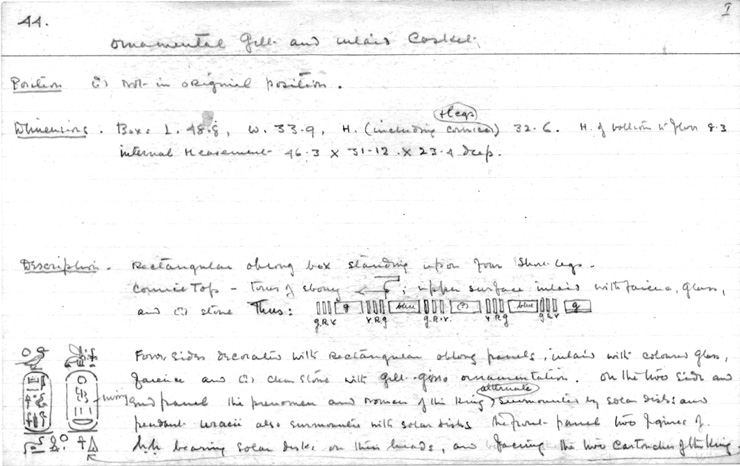 44. I
Ornamental Gilt and inlaid Casket.
Position (?) not in original position.
+ legs
Dimensions. Box: L. 48.8, W. 33.9, H. (including cornice) 32.6. H. of bottom to floor 8.3
internal Measurement 46.3 x 31.12 x 23.4 deep.
Description. Rectangular oblong box standing upon four short legs.
Cornice Top – torus of ebony ; upper surface inlaid with faience, glass,
and (?) stone Thus: g blue (?) blue g
g.R.v v R g g.R.v. v R g g R v
Four sides decorated with rectangular oblong panels, inlaid with coloured glass,
faience and (?) clear stone with gilt-gesso ornamentation. On the two sides and
alternate
ivory end panel the prenomen and nomen of the King surmounted by solar disks and
pendent uraei also surmounted with solar disks the front panel two figures of
Ḥeḥ bearing solar disks on their heads, and facing the two cartouches of the King.